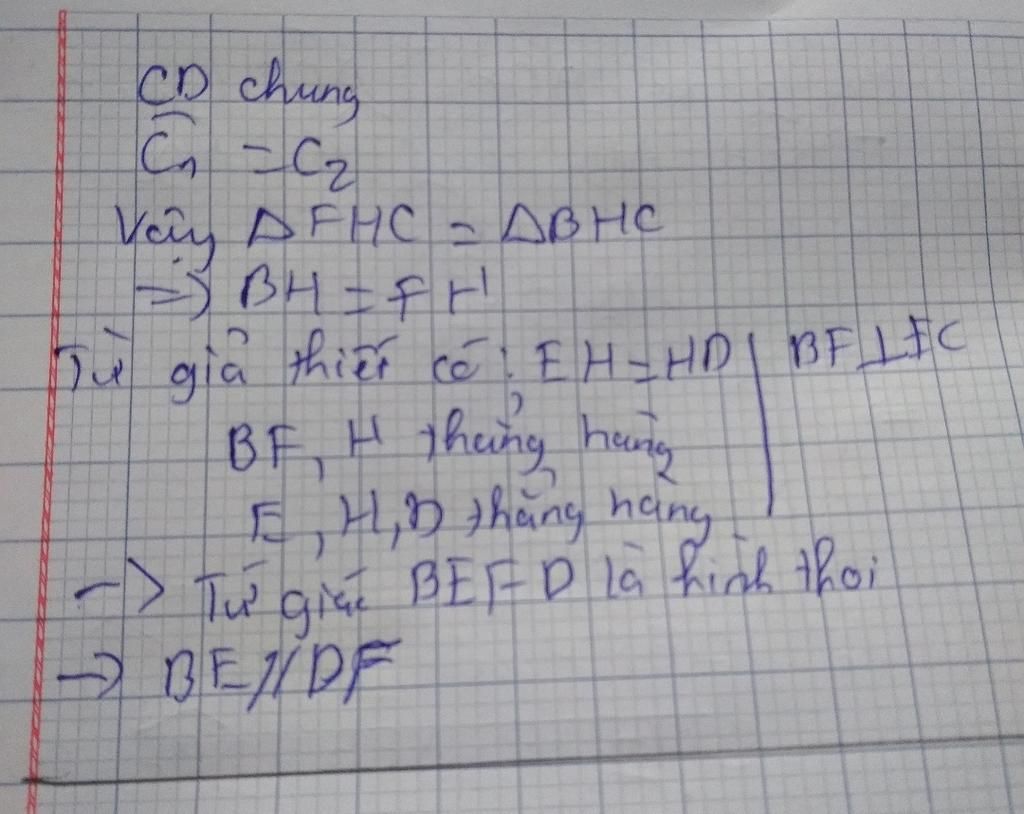 CD chung
C₁ = C₂
Vậy ΔFHC = ΔBHC
=> BH = FH
Từ giả thiết có: EH = HD | BF ⊥ EC
BF, H thẳng hàng
E, H, D thẳng hàng
-> Tứ giác BEFD là hình thoi
-> BE // DF